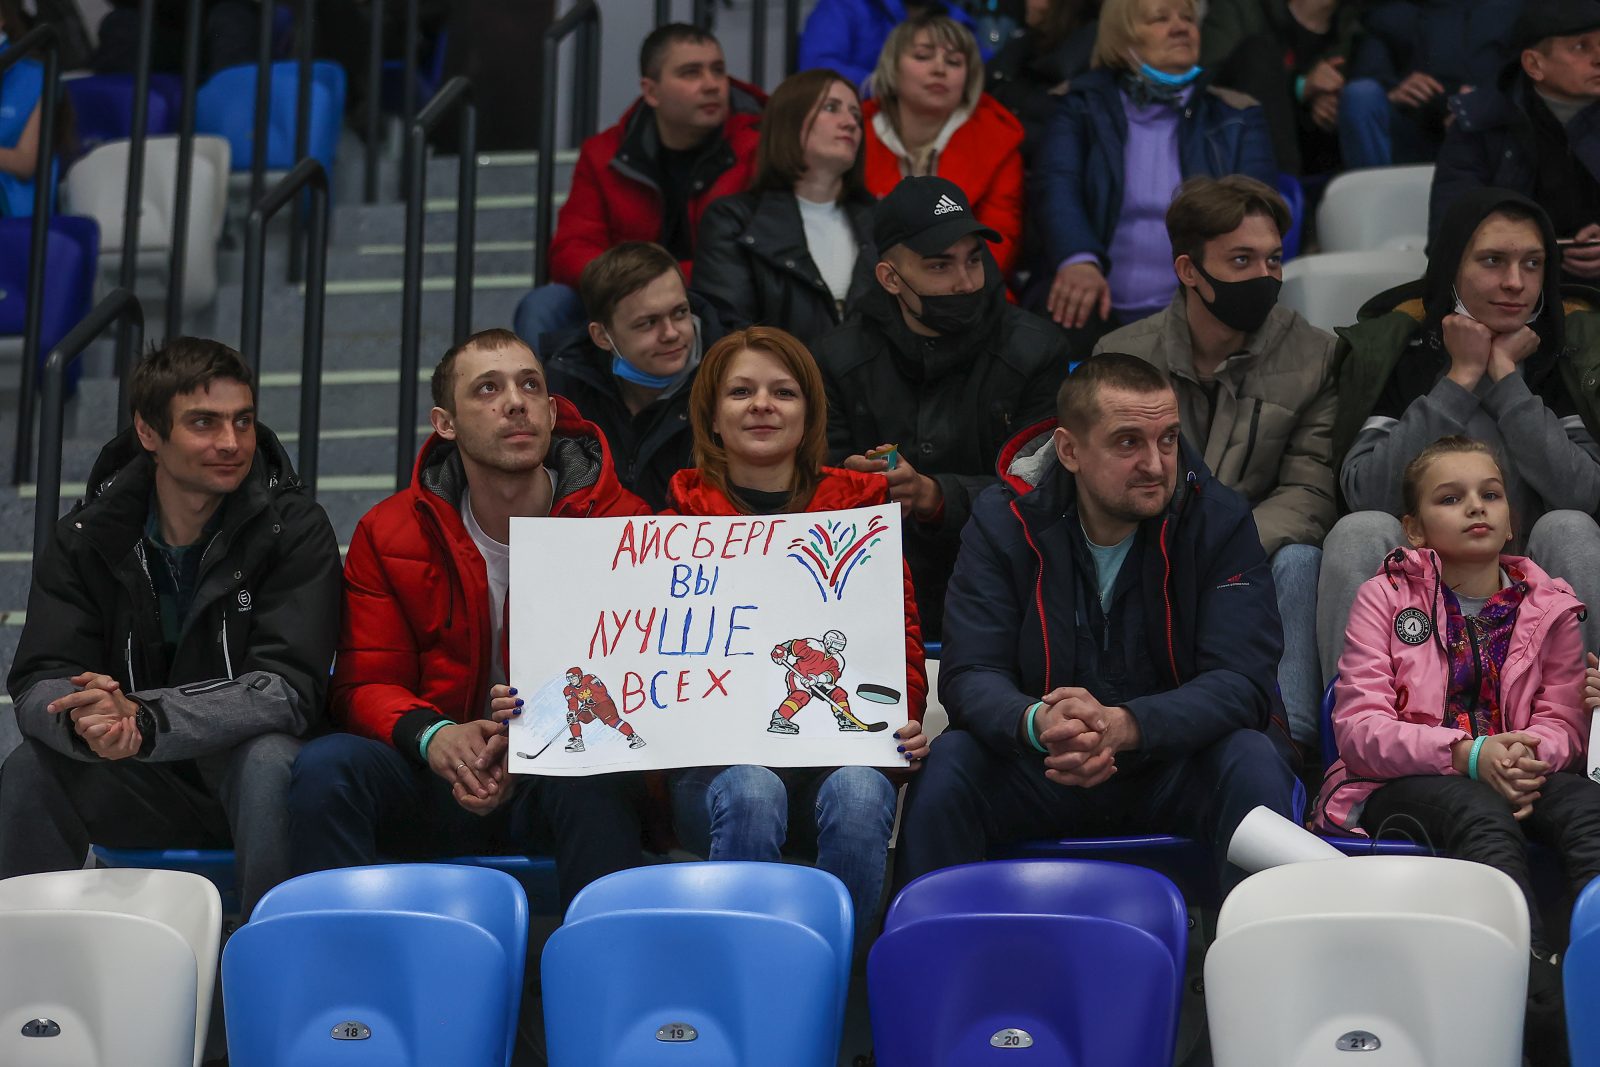 adidas
АЙСБЕРГ
ВЫ
ЛУЧШЕ
ВСЕХ
17
18
19
20
21